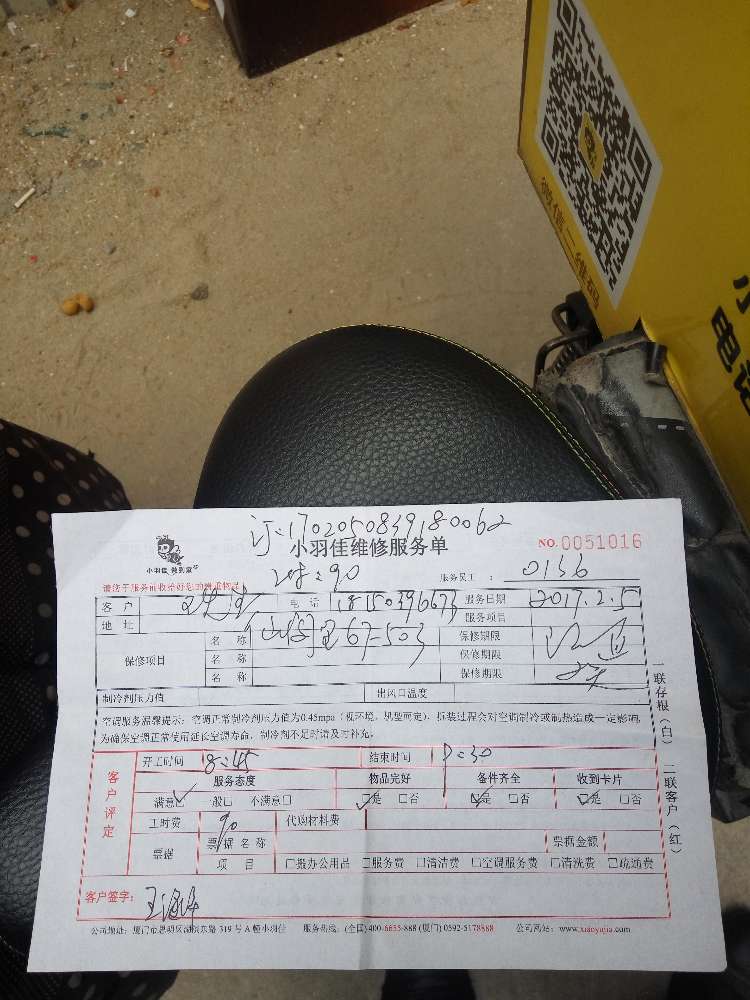 微信二维码
小
电话
订:1702050839180062
小羽佳 做到家
小羽佳维修服务单
NO.0051016
请您于服务前收拾好您的贵重物品!
时:90
服务员工: 0136
客户 王先生 电话 18150396673 服务日期 2017.2.5
地址 服务项目
67-503
保修项目 名称 保修期限
名称 保修期限
名称 保修期限
制冷剂压力值 出风口温度
空调服务温馨提示:空调正常制冷剂压力值为0.45mpa(视环境、机型而定),拆装过程会对空调制冷或制热造成一定影响,
为确保空调正常使用延长空调寿命,制冷剂不足时请及时补充。
一联存根(白) 二联客户(红)
客户评定
开工时间 8:45 结束时间 9:30
服务态度 物品完好 备件齐全 收到卡片
满意☑ 一般□ 不满意□ ☑是 □否 ☑是 □否 ☑是 □否
工时费 90 代购材料费
票据 票据名称 票据金额
项目 □搬办公用品 □服务费 □清洁费 □空调服务费 □清洗费 □疏通费
客户签字: 王
公司地址:厦门市思明区湖滨东路 319 号 A 幢小羽佳 服务热线:(全国)400-6655-888 (厦门) 0592-5178888 公司网站:www.xiaoyujia.com